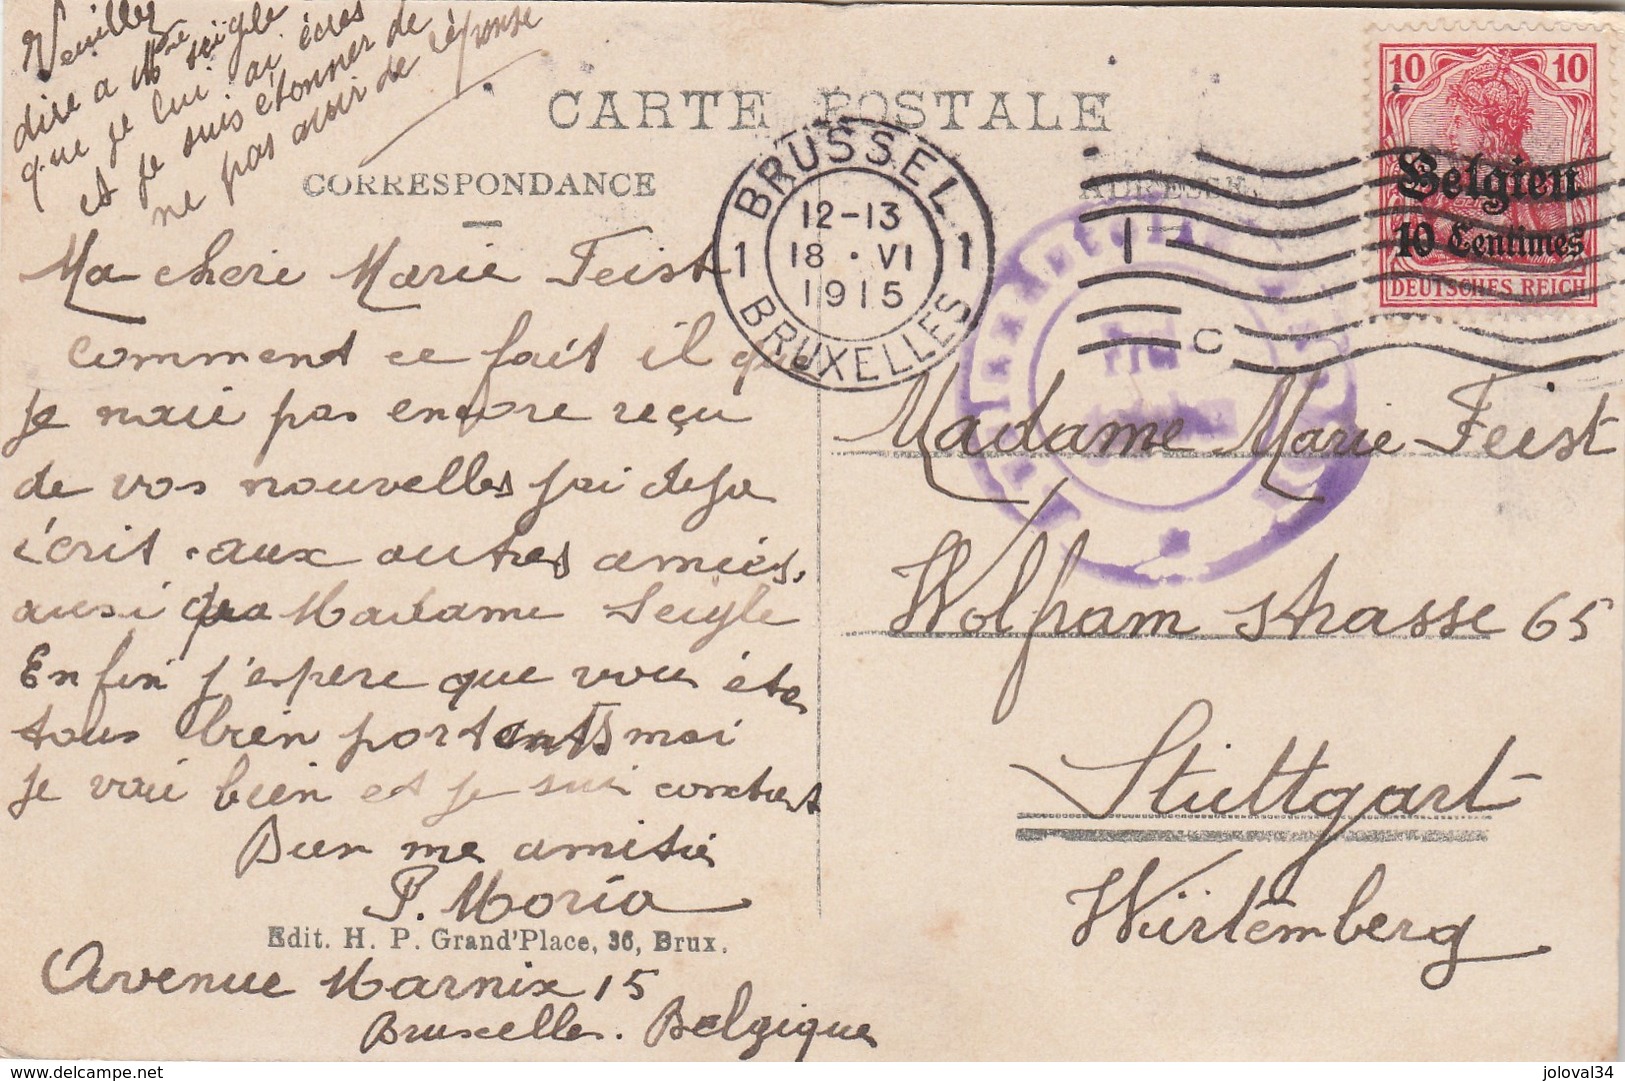 Veuillez
dire a Mme Seigle
que je lui ai écris
et je suis étonner de
ne pas avoir de réponse
CARTE POSTALE
CORRESPONDANCE
ADRESSE
BRUSSEL
1 12-13 1
18 · VI
1915
BRUXELLES
1
C
10 10
Belgien
10 Centimes
DEUTSCHES REICH
Ma chere Marie Feist
comment ce fait il que
je naie pas encore reçu
de vos nouvelles jai deja
écrit aux autres amies,
ausi Madame Seigle
Enfin j'espere que vous éte
tous bien portents moi
je vais bien et je suis contbent
Bien me amitié
P. Moria
Edit. H. P. Grand'Place, 36, Brux.
Avenue Marnix 15
Bruxelles. Belgique
Madame Marie Feist
Wolfram strasse 65
Stuttgart
Würtemberg
joloval34